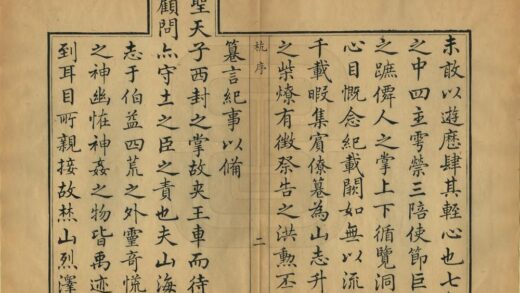 未敢以遊歷肆其輕心也七
之中四主雩禜三陪使節巨
之蹠僊人之掌上下循覽洞
心目慨念紀載闕如無以流
千載暇集賓僚纂為山志升
之柴燎有徵祭告之洪勳丕
序
二
纂言紀事以備
聖天子西封之掌故夾王車而待
顧問亦守土之臣之責也夫山海
志于伯益四荒之外靈奇慌
之神幽恠神姦之物皆禹迹
到耳目所親接故焚山烈澤